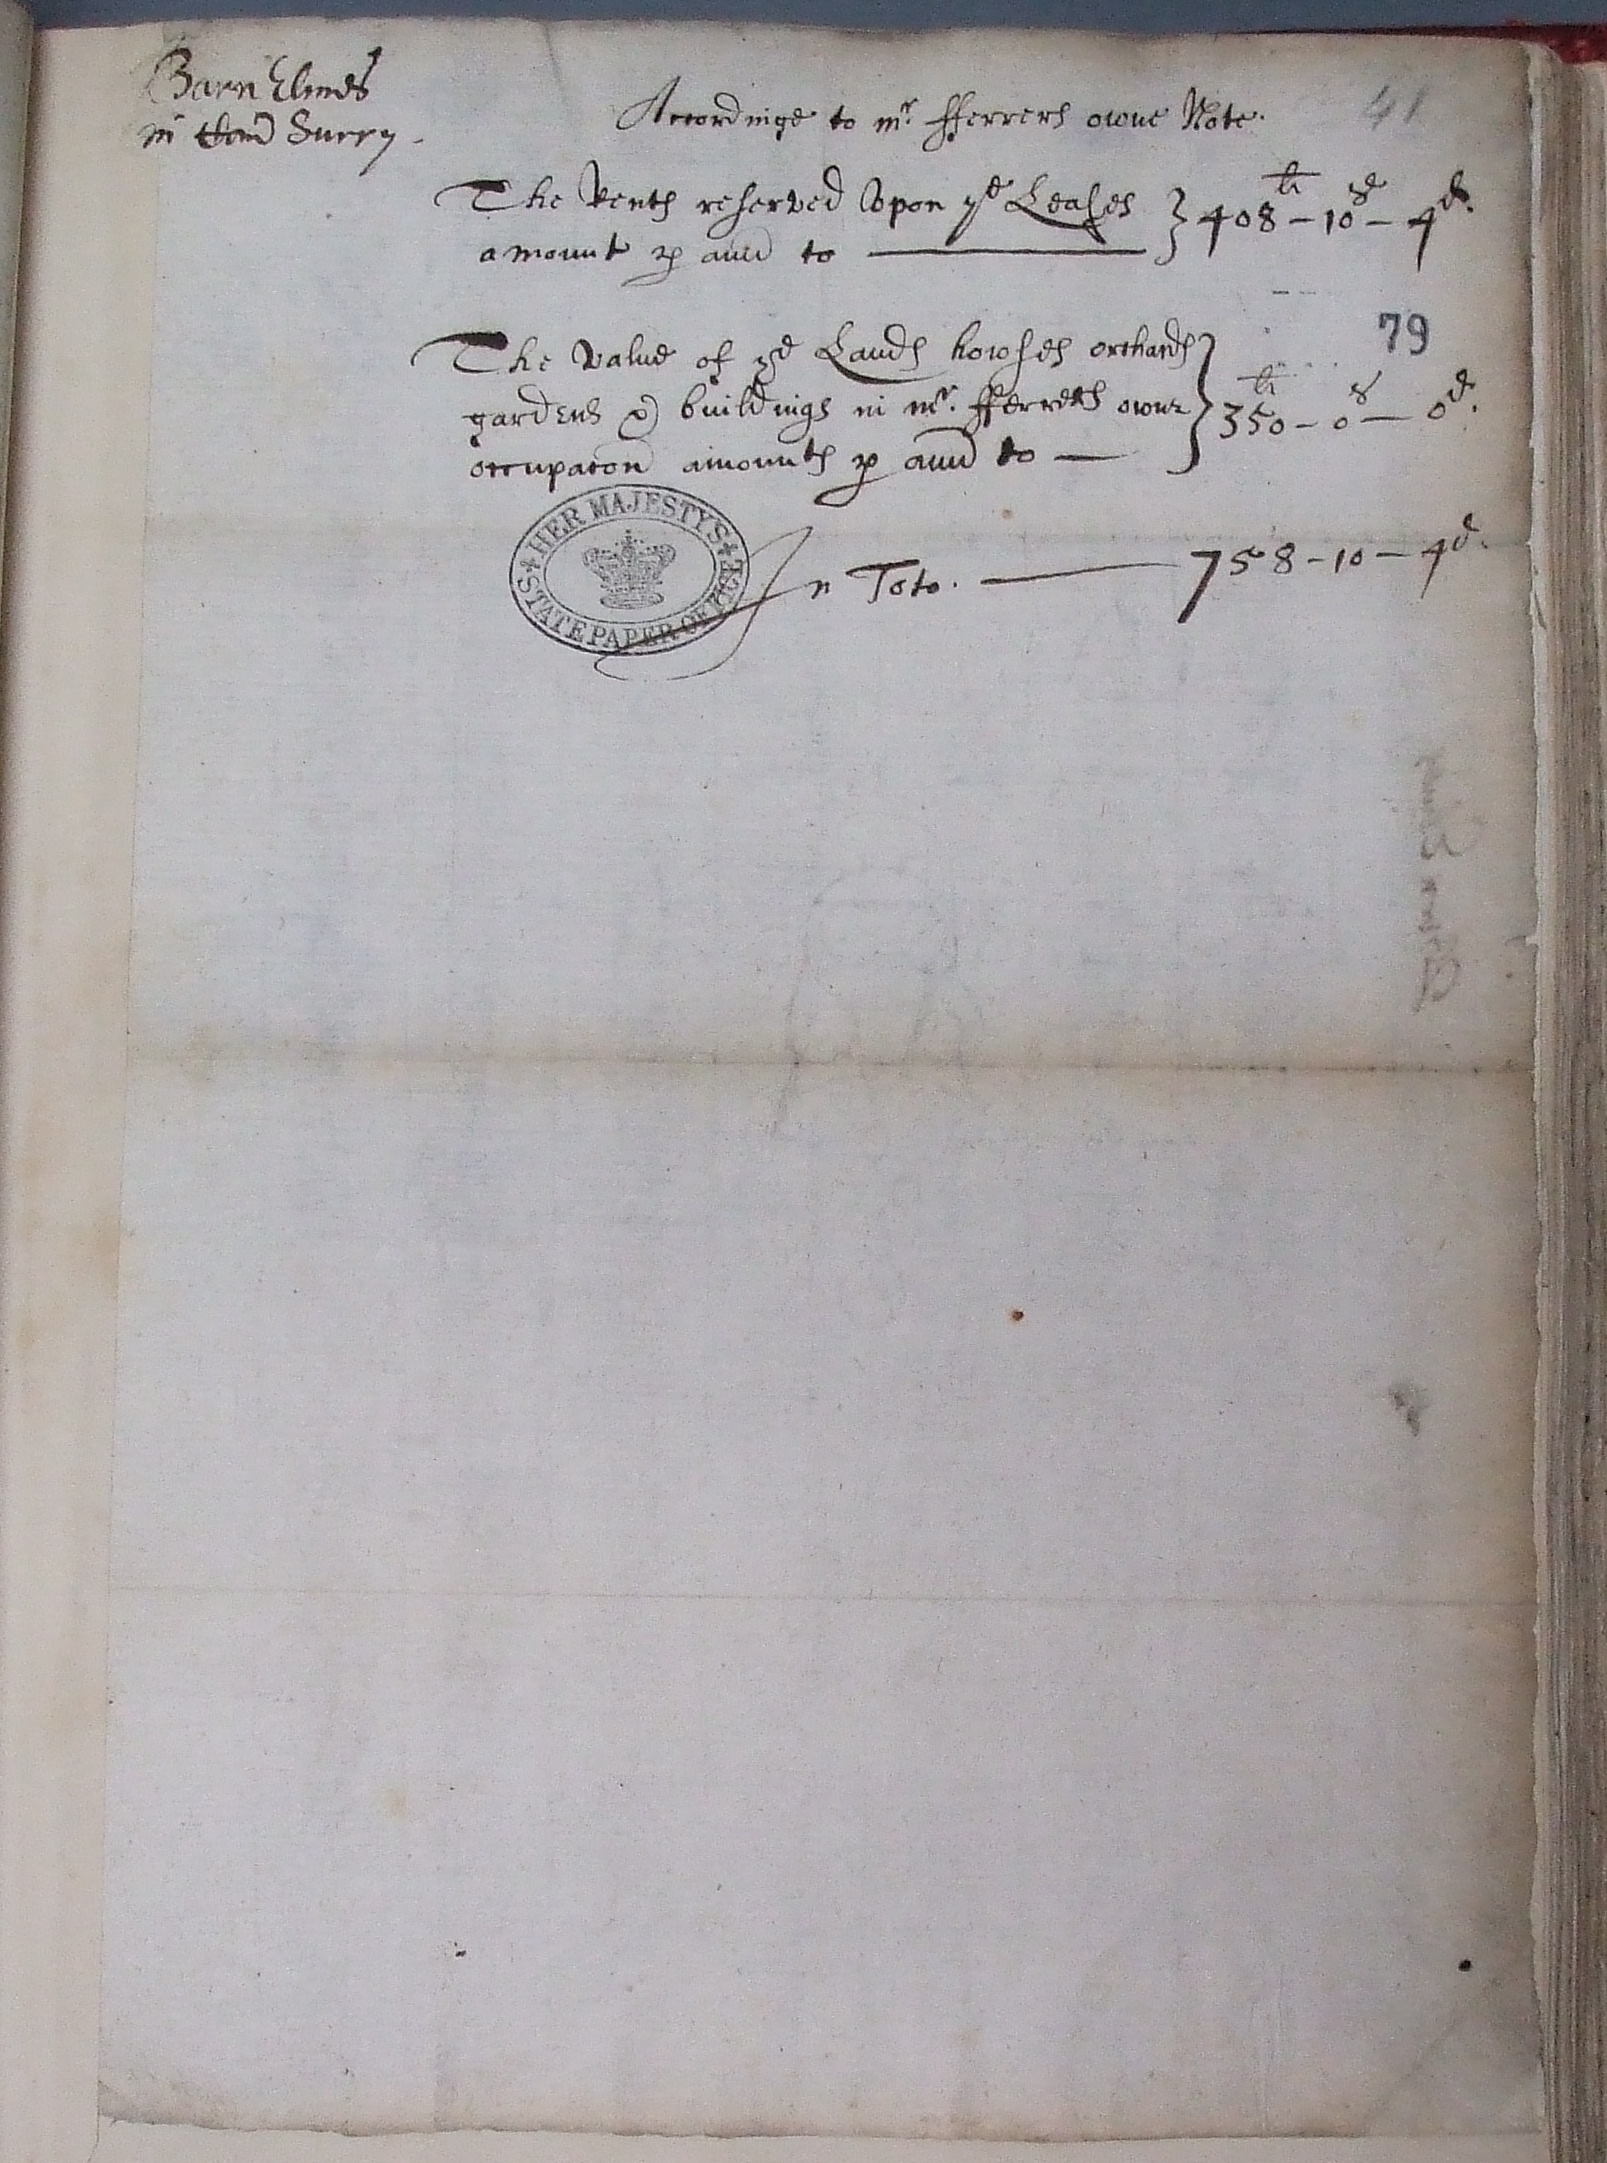 Barn Elmes
in Com Surry.
41
Accordinge to mr. fferrers owne Note.
The Rents reserved Upon ye Leases } 408li - 10s - 4d.
amount p ann to
79
The value of ye Lands howses orchards
gardens & buildings in mr. fferrers owne } 350li - 0s - 0d.
occupacon amounts p ann to
HER MAJESTYS
STATE PAPER OFFICE
In Toto. 758 - 10 - 4d.